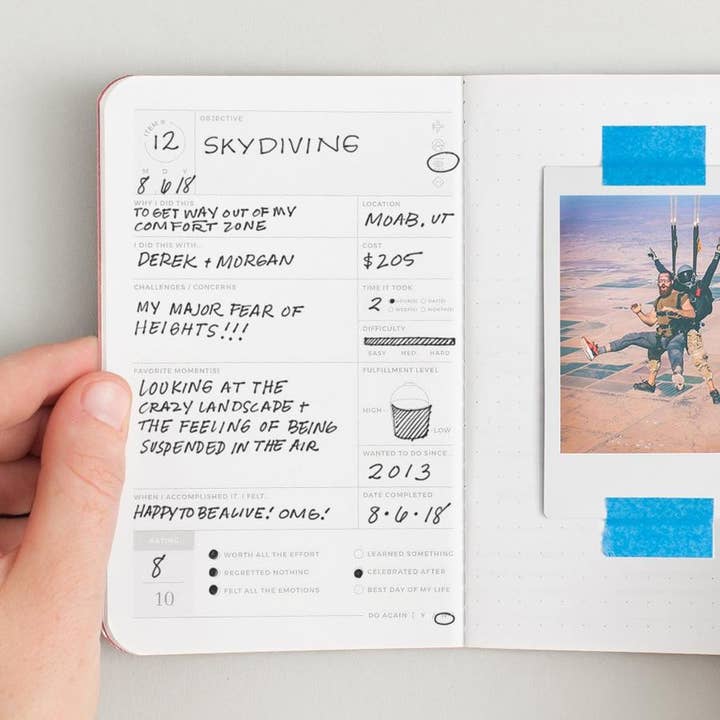 ITEM #
12
OBJECTIVE
SKYDIVING
M D Y
8 6 18
WHY I DID THIS
TO GET WAY OUT OF MY
COMFORT ZONE
LOCATION
MOAB, UT
I DID THIS WITH...
DEREK + MORGAN
COST
$205
CHALLENGES / CONCERNS
MY MAJOR FEAR OF
HEIGHTS!!!
TIME IT TOOK
2
HOUR(S) DAY(S)
WEEK(S) MONTH(S)
DIFFICULTY
EASY MED. HARD
FAVORITE MOMENT(S)
LOOKING AT THE
CRAZY LANDSCAPE +
THE FEELING OF BEING
SUSPENDED IN THE AIR
FULFILLMENT LEVEL
HIGH
LOW
WANTED TO DO SINCE...
2013
WHEN I ACCOMPLISHED IT, I FELT...
HAPPY TO BE ALIVE! OMG!
DATE COMPLETED
8•6•18
RATING
8
10
WORTH ALL THE EFFORT
REGRETTED NOTHING
FELT ALL THE EMOTIONS
LEARNED SOMETHING
CELEBRATED AFTER
BEST DAY OF MY LIFE
DO AGAIN [ Y